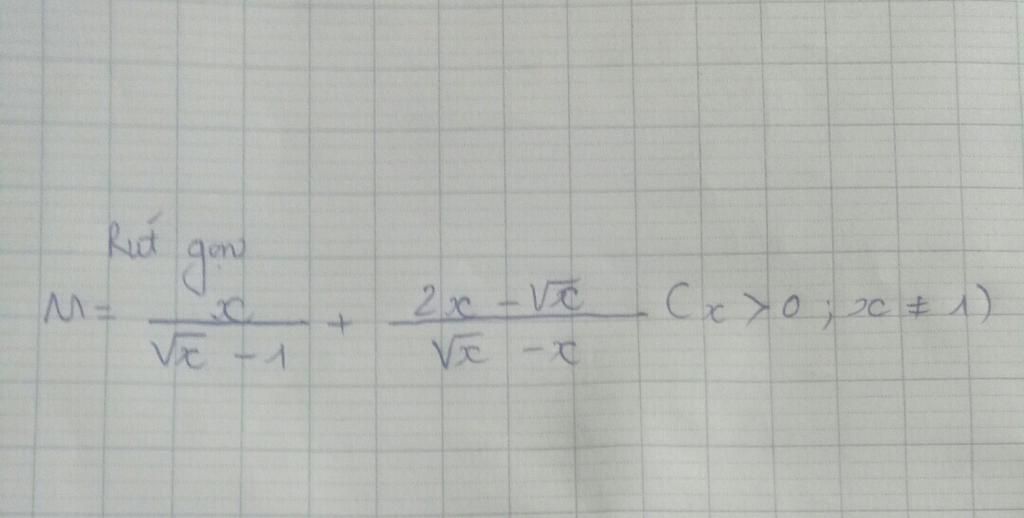 Rút gọn
M = \frac{x}{\sqrt{x} - 1} + \frac{2x - \sqrt{x}}{\sqrt{x} - x} (x > 0 ; x ≠ 1)